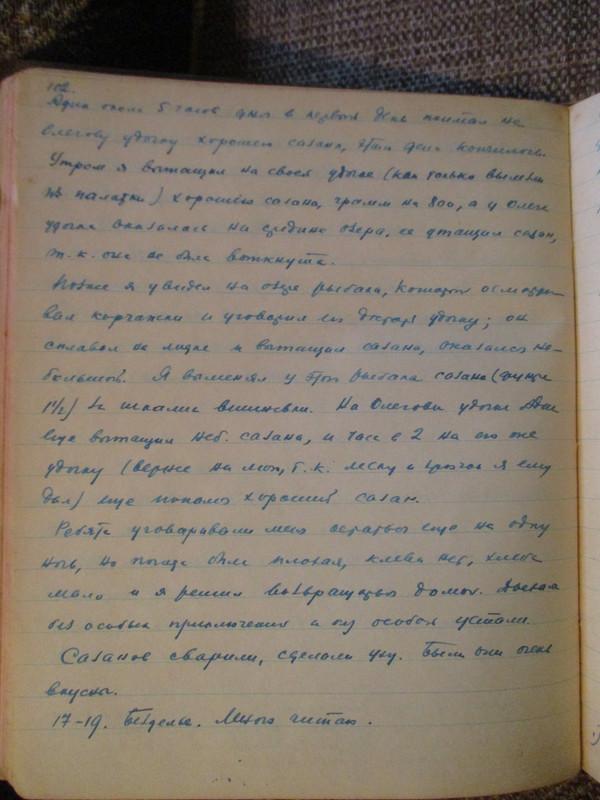 102.
Адик около 5 часов дня в первый день поймал на
Олегову удочку хорошего сазана, этим день кончилось.
Утром я вытащил на своей удочке (как только вылезли
из палатки) хорошего сазана, грамм на 800, а у Олега
удочка оказалась на средине озера, ее утащил сазан,
т.к. она не была воткнута.
Позже я увидел на озере рыбака, который осматри-
вал корчажки и уговорил его достать удочку; он
сплавал на лодке и вытащил сазана, оказался не-
большой. Я выменял у этого рыбака сазана (фунта
1½) за шкалик вишневки. На Олегову удочку Адик
еще вытащил неб. сазана, и часа в 2 на его же
удочку (вернее на мою, т.к. леску и крючок я ему
дал) еще попался хороший сазан.
Ребята уговаривали меня остаться еще на одну
ночь, но погода была плохая, клева нет, хлеба
мало и я решил возвращаться домой. Доехали
без особых приключений и без особой усталости.
Сазанов сварили, сделали уху. Были они очень
вкусны.
17-19. Безделье. Много читаю.